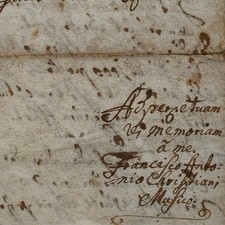 Ad perpetuam
rei memoriam
à me.
Francisco Anto-
nio Christiani
Musico.